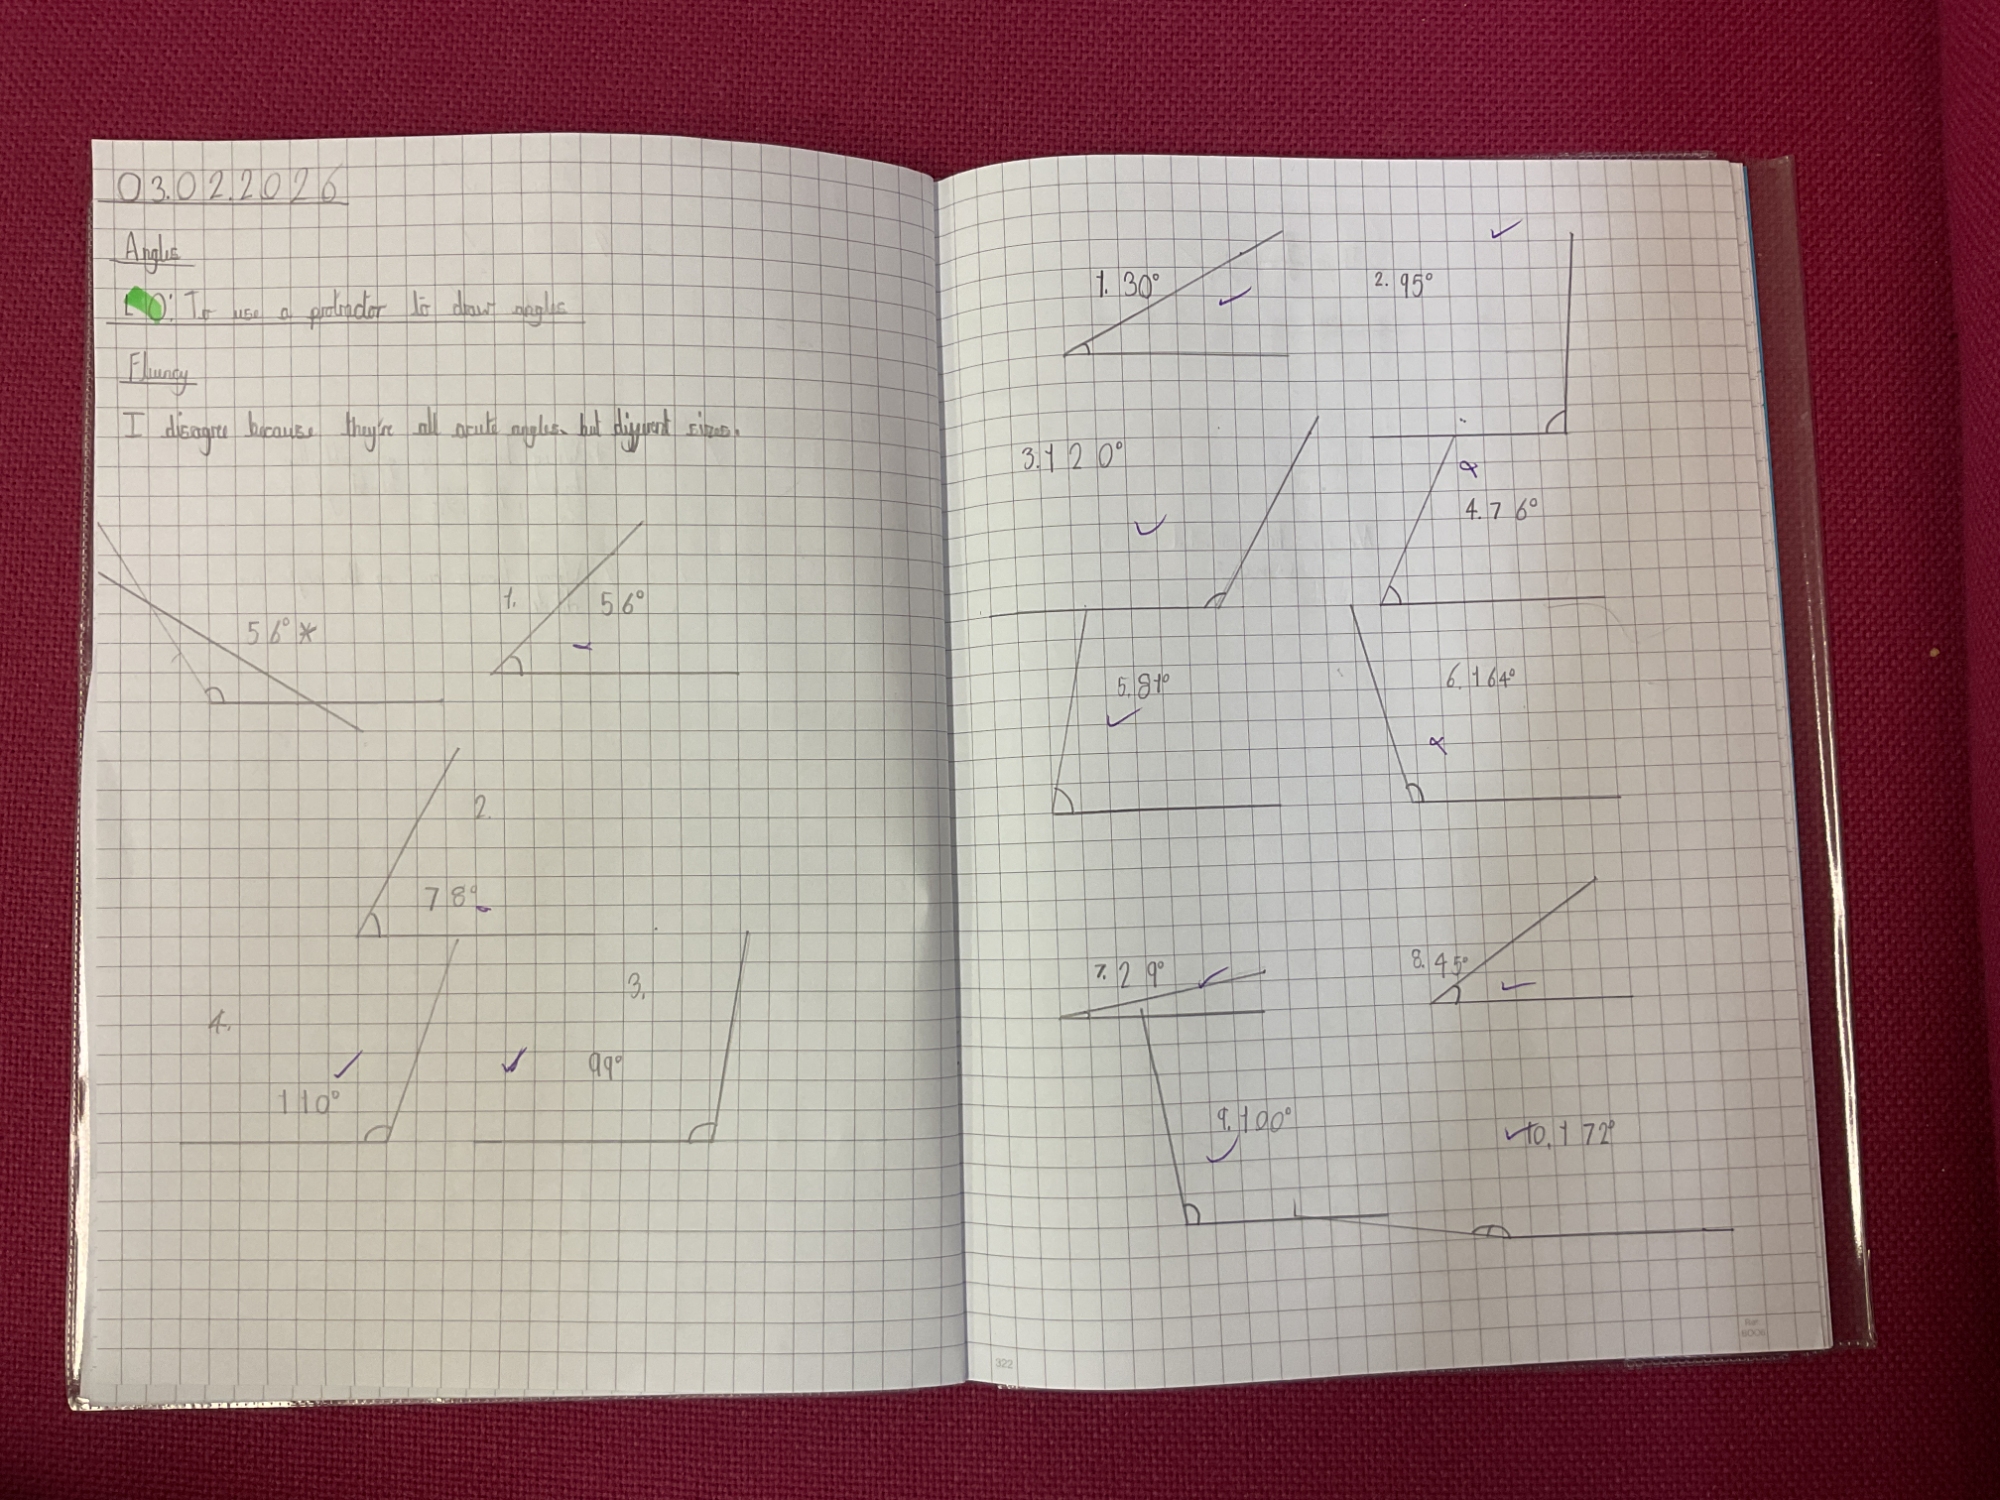 03.02.2026
Angles
LO: To use a protractor to draw angles
Fluency
I disagree because they're all acute angles but different sizes.
56°*
1.
56°
2.
78°
3.
99°
4.
110°
1. 30°
2. 95°
3. 120°
4. 76°
5. 81°
6. 164°
7. 29°
8. 45°
9. 100°
10. 172°
322